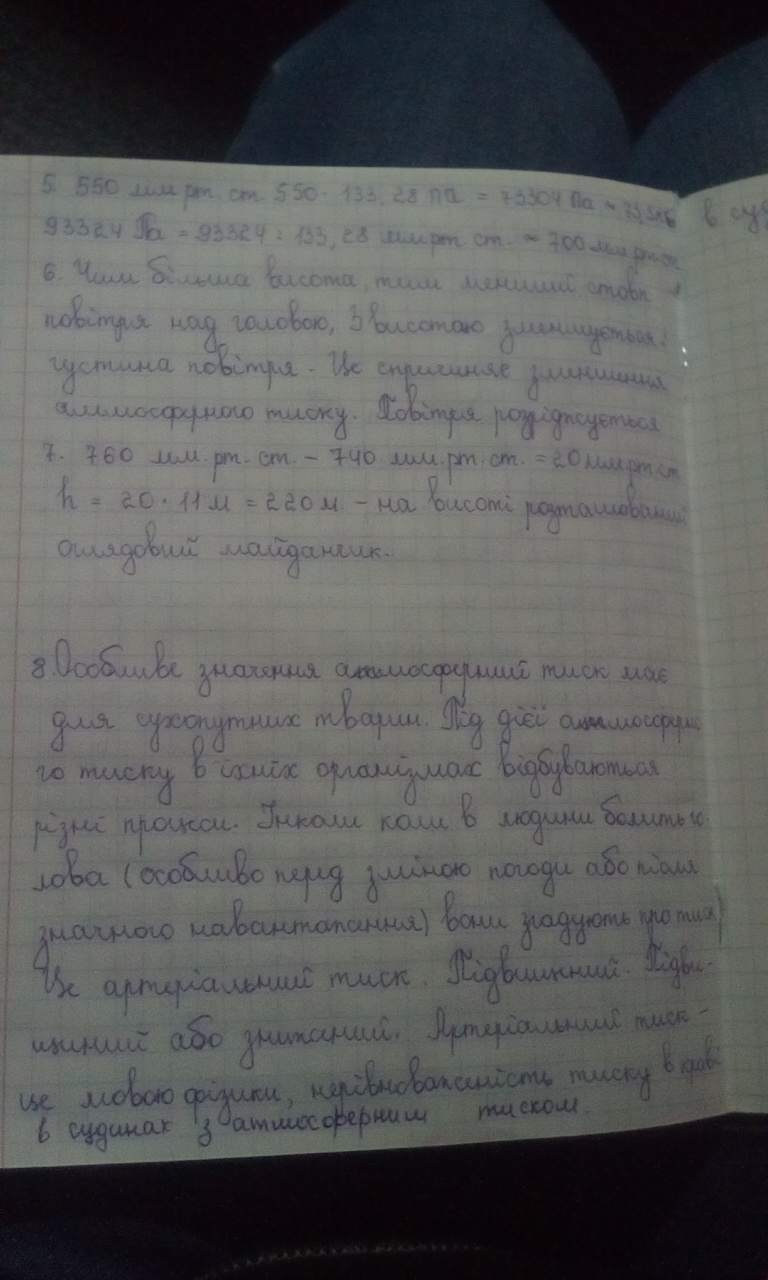 5. 550 мм рт. ст. 550 · 133,28 Па = 73304 Па ≈
93324 Па = 93324 : 133,28 мм рт ст. ≈ 700 мм рт ст
6. Чим більша висота, тим менший стовп
повітря над головою, З висотою зменшується
густина повітря. Це спричиняє зменшення
атмосферного тиску. Повітря розріджується
7. 760 мм.рт.ст. – 740 мм.рт.ст. = 20 мм рт ст
h = 20 · 11 м = 220 м. – на висоті розташований
оглядовий майданчик.
8. Особливе значення атмосферний тиск має
для сухопутних тварин. Під дієї атмосферно
го тиску в їхніх організмах відбуваються
різні процеси. Інколи коли в людини болить го
лова (особливо перед зміною погоди або після
значного навантаження) вони згадують про тиск
Це артеріальний тиск. Підвищений. Підви-
щиний або знижаний. Артеріальний тиск –
це мовою фізики, нерівноваженість тиску в крові
в судинах з атмосферним тиском.